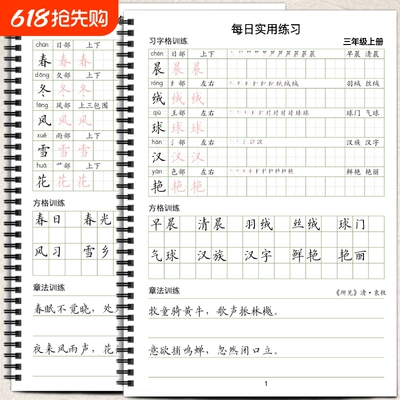 618抢先购
chūn 日部 上下
春 春 春
dōng 夂部 上下
冬 冬 冬
fēng 风部 上三包围
风 风 风
xuě 雨部 上下
雪 雪 雪
huā 艹部 上下
花 花 花
方格训练
春日 春光
风习 雪乡
章法训练
春眠不觉晓，处
夜来风雨声，花
每日实用练习
习字格训练 三年级上册
chén 日部 上下 早晨 清晨
晨 晨 晨
róng 纟部 左右 羽绒 丝绒
绒 绒 绒
qiú 王部 左右 球门 气球
球 球 球
hàn 氵部 左右 汉族 汉字
汉 汉 汉
yàn 色部 左右 鲜艳 艳丽
艳 艳 艳
方格训练
早晨 清晨 羽绒 丝绒 球门
气球 汉族 汉字 鲜艳 艳丽
章法训练 《所见》清·袁枚
牧童骑黄牛，歌声振林樾。
意欲捕鸣蝉，忽然闭口立。
1